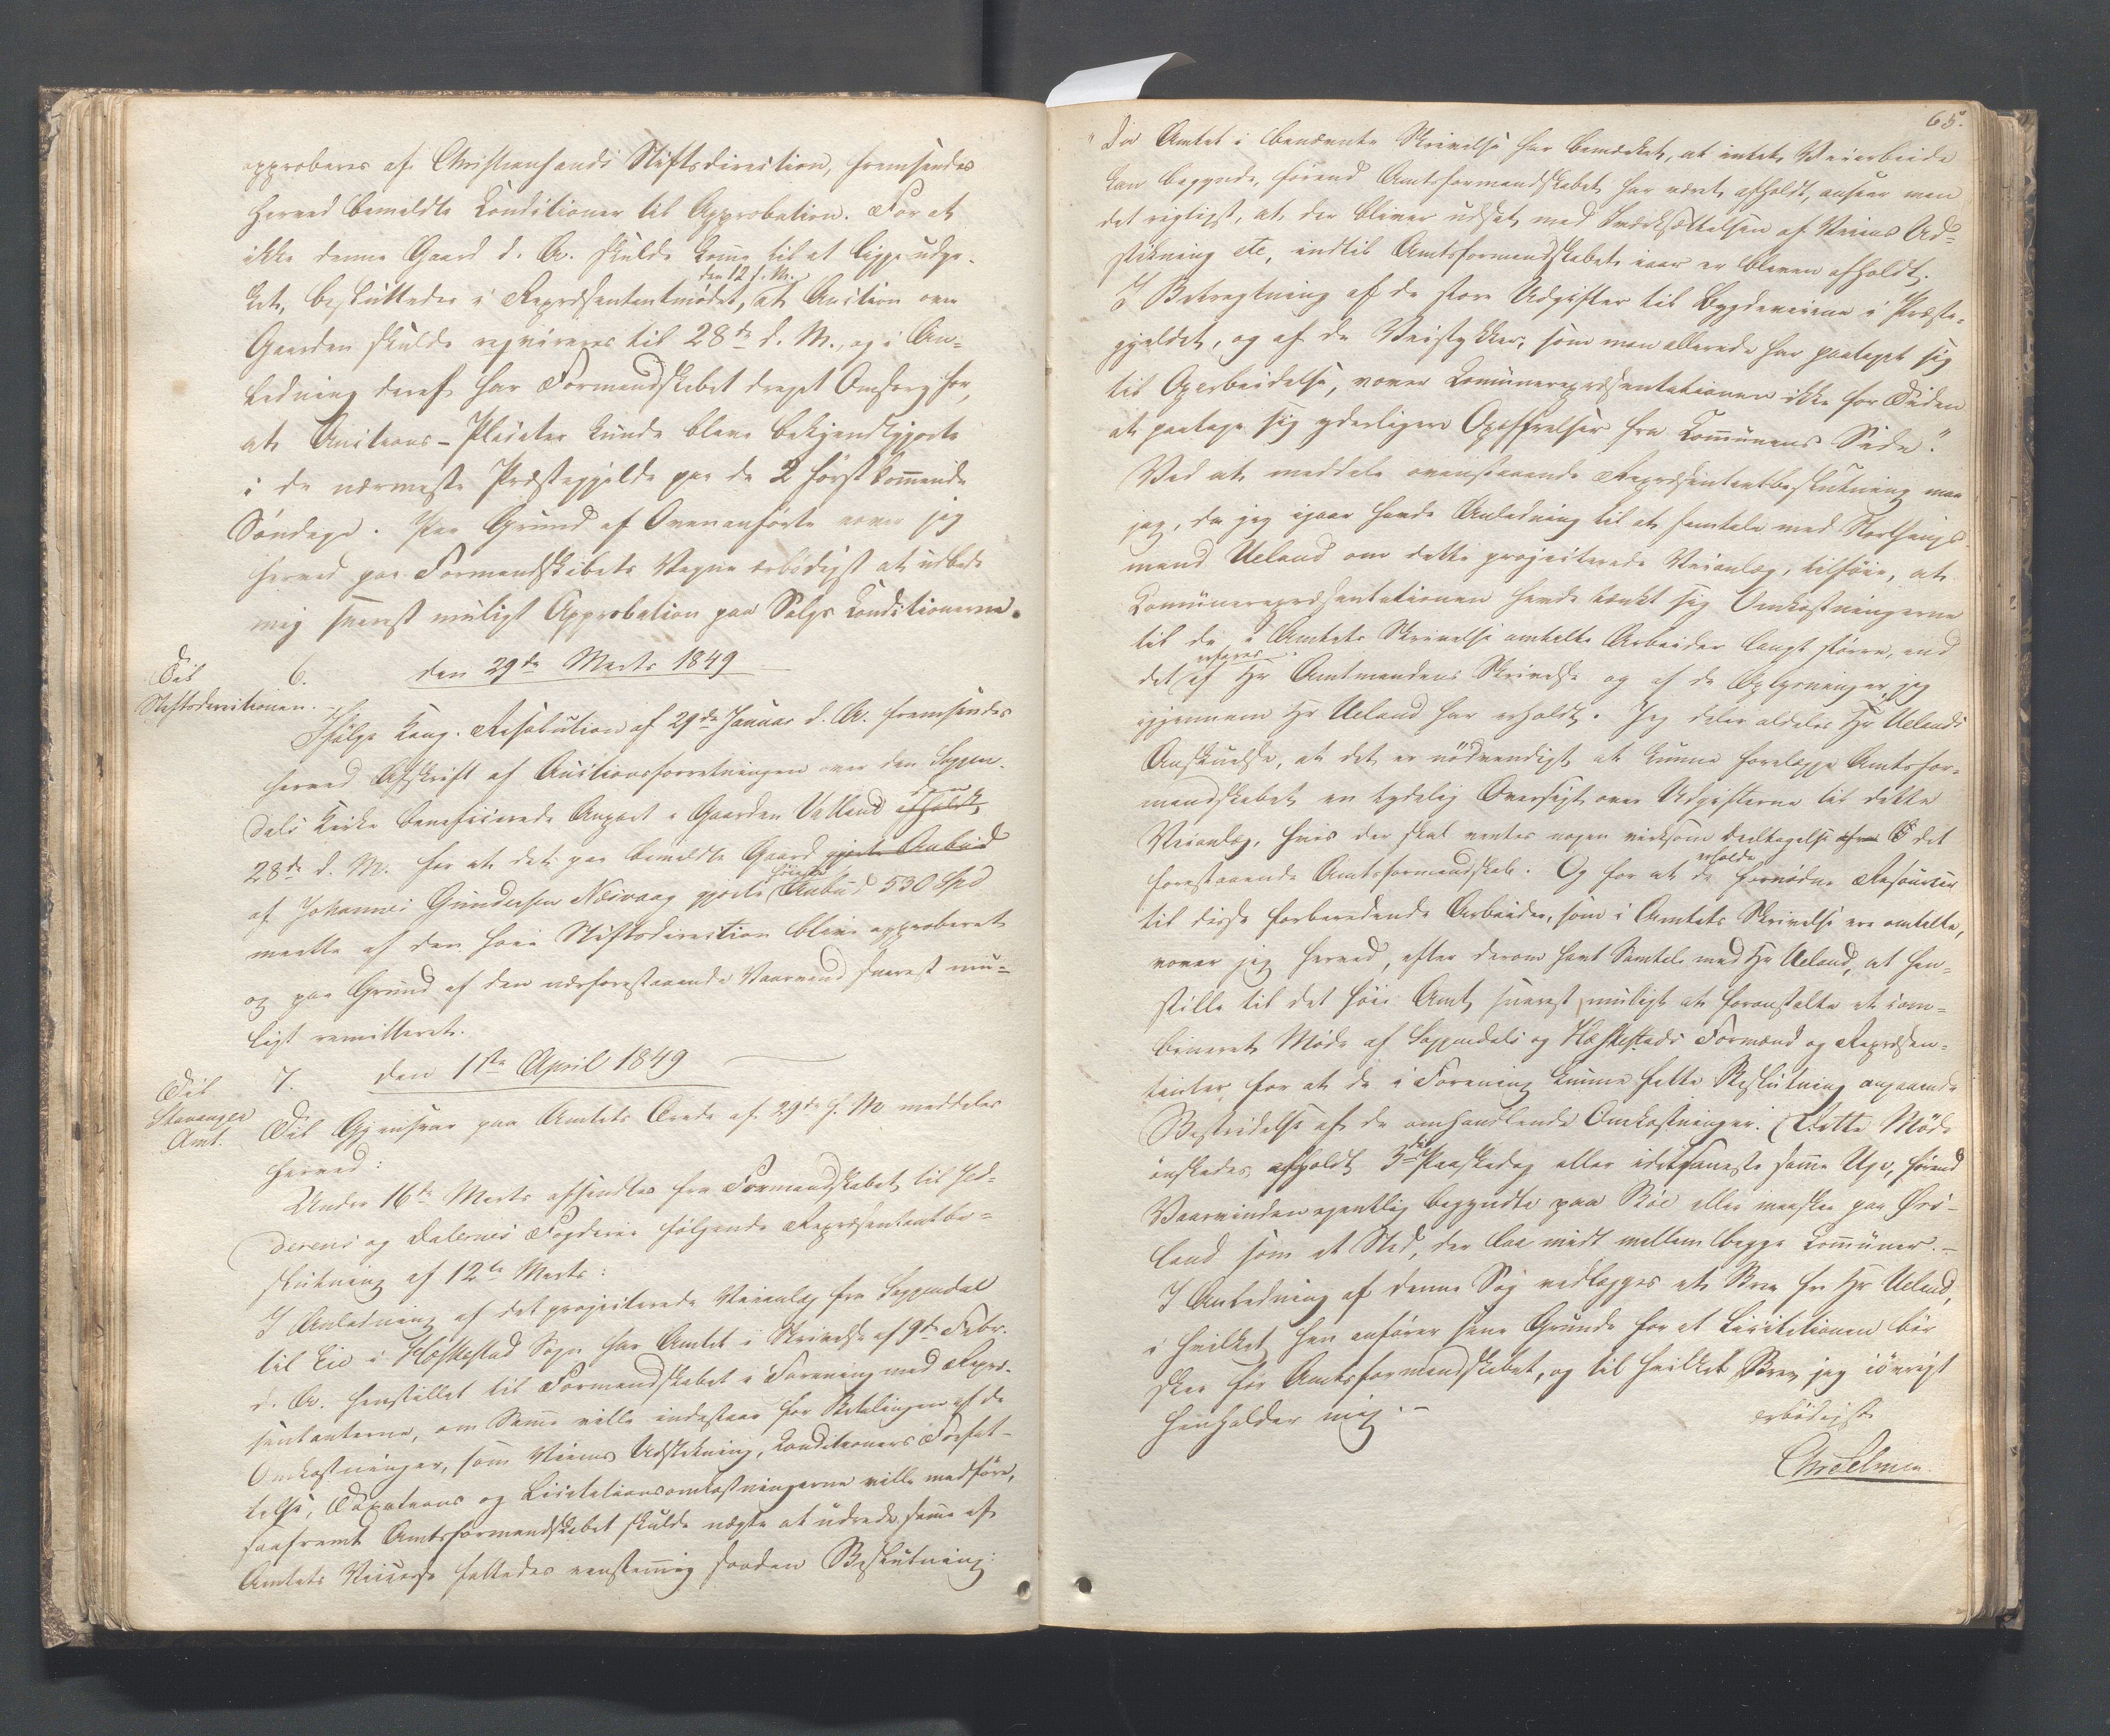 approberes af Christiansands Stiftsdirection, fremsendes
herved bemeldte Conditioner til Approbation. For at
ikke denne Gaard d. A. skulde komme til at ligge udyr-
ket, besluttedes i Repræsentantmødet, den 12 d. M. at Auction over
Gaarden skulde requireres til 28de d. M., og i An-
ledning deraf har Formandskabet draget Omsorg for,
at Auctions-Placater kunde blive bekjendtgjorte
i de nærmeste Præstegjelde paa de 2 førstkommende
Søndage. Paa Grund af Ovenanførte vover jeg
herved paa Formandskabets Vegne ærbødigst at udbede
mig snarest muligt Approbation paa Salgs Conditionerne.
Til
Stiftsdirectionen.
6. den 29de Marts 1849
Ifølge Kong. Resolution af 29de Januar d. A. fremsendes
herved Afskrift af Auctionsforretningen over den Soggen-
dals Kirke beneficerede Anpart i Gaarden Vatland afholdt
28de d. M. for at det paa bemeldte Gaard gjorte Anbud
af Johannes Gundersen Næsvaag gjorte høieste Anbud 530 Spd
maatte af den høie Stiftsdirection blive approberet
og paa Grund af den nærforestaaende Vaaraand snarest mu-
ligt remitteret.
Til
Stavanger
Amt.
7. den 1ste April 1849
Til Gjensvar paa Amtets Ærede af 29de f. M meddeles
herved:
Under 16de Marts afsendtes fra Formandskabet til Jed-
derens og Dalernes Fogderie følgende Repræsentantbe-
slutning af 12te Marts:
I Anledning af det projecterede Veianlæg fra Soggendal
til Eie i Hæskestad Sogn har Amtet i Skrivelse af 9de Febr.
d. A. henstillet til Formandskabet i Forening med Repræ-
sentanterne, om Samme ville indestaae for Betalingen af de
Omkostninger, som Veiens Udstikning, Conditioners Forfat-
telse, Taxations og Licitationsomkostningerne ville medføre,
saafremt Amtsformandskabet skulde nægte at udrede samme af
Amtets Veicasse fattedes eenstemmig saadan Beslutning:
65.
"Da Amtet i benævnte Skrivelse har bemærket, at intet Veiarbeide
kan begynde, førend Amtsformandskabet har været afholdt, ansees man
det rigtigst, at der bliver udsat med Iværksættelsen af Veiens Ud-
stikning etc, indtil Amtsformandskabet iaar er bleven afholdt.
I Betragtning af de store Udgifter til Bygdeveiene i Præste-
gjeldet, og af de Veistykker, som man allerede har paataget sig
til Oparbeidelse, vover Communerepræsentationen ikke for Tiden
at paatage sig yderligere Opoffrelser fra Communens Side."
Ved at meddele ovenstaaende Repræsentantbeslutning maa
jeg, da jeg igaar havde Anledning til at samtale med Storthings-
mand Ueland om dette projecterede Veianlæg, tilføie, at
Communerepræsentationen havde tænkt sig Omkostningerne
til de i Amtets Skrivelse omtalte Arbeider langt større, end
det erfares af Hr Amtmandens Skrivelse og af de Oplysninger jeg
igjennem Hr Ueland har erholdt. Jeg deler aldeles Hr Uelands
Anskuelse, at det er nødvendigt at kunne forelægge Amtsfor-
mandskabet en tydelig Oversigt over Udgifterne til dette
Veianlæg, hvis der skal ventes nogen virksom Deeltagelse af det
forestaaende Amtsformandskab. Og for at erholde de fornødne Resourcer
til disse forberedende Arbeider, som i Amtets Skrivelse ere omtalte,
vover jeg herved, efter derom havt Samtale med Hr Ueland, at hen-
stille til det høie Amt snarest muligt at foranstalte et com-
bineret Møde af Soggendals og Hæskestads Formænd og Repræsen-
tanter for at de i Forening kunne fatte Beslutning angaaende
Bestridelse af de omhandlende Omkostninger. (Dette Møde
ønskedes afholdt 3die Paaskedag eller idetseneste samme Uge, førend
Vaarvinden egentlig begyndte paa Røe eller maaskee paa Ørs-
land som et Sted, der laa midt mellem begge Communer. –
I Anledning af denne Sag vedlægges et Brev fra Hr Ueland,
i hvilket han anfører sine Grunde for at Licitationen bør
skee før Amtsformandskabet, og til hvilket Brev jeg iøvrigt
henholder mig. –
ærbødigst